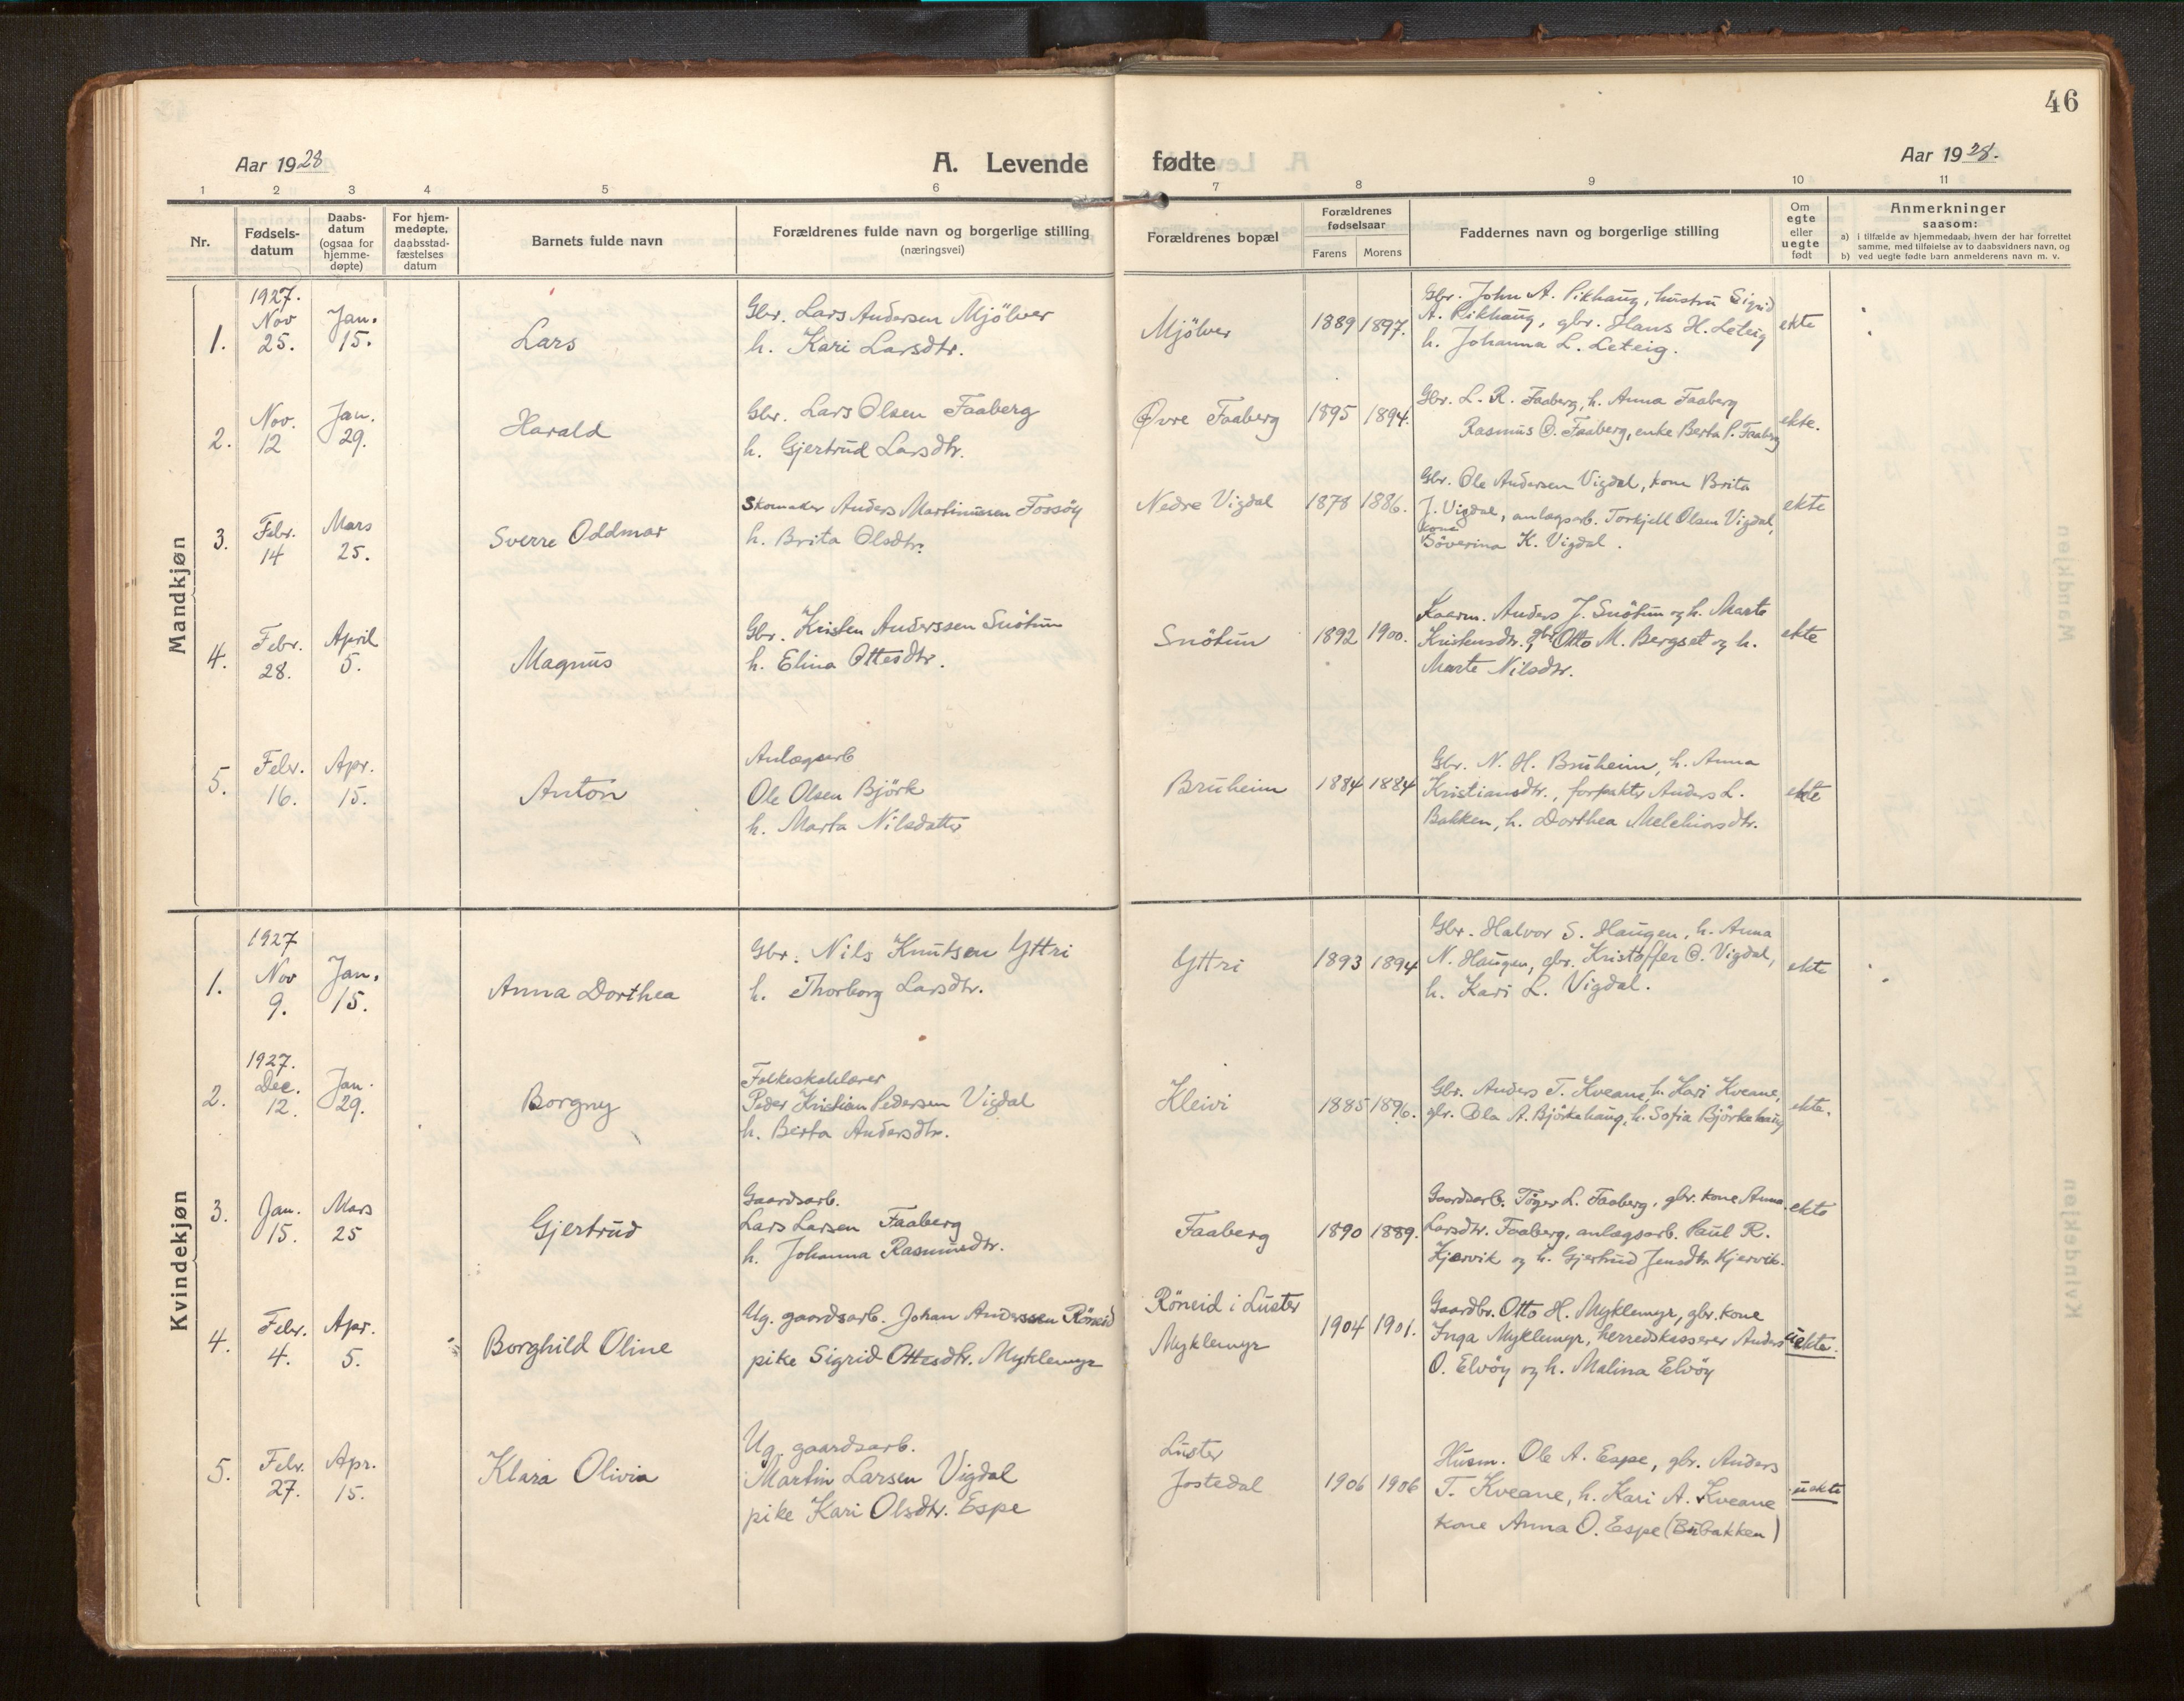 46
Aar 1928
A. Levende fødte
Aar 1928.
1 2 3 4 5 6 7 8 9 10 11
Nr.
Fødsels-
datum
Daabs-
datum
(ogsaa for
hjemme-
døpte)
For hjem-
medøpte,
daabsstad-
fæstelses
datum
Barnets fulde navn
Forældrenes fulde navn og borgerlige stilling
(næringsvei)
Forældrenes bopæl
Forældrenes
fødselsaar
Farens Morens
Faddernes navn og borgerlige stilling
Om
egte
eller
uegte
født
Anmerkninger
saasom:
a) i tilfælde av hjemmedaab, hvem der har forrettet
samme, med tilføielse av to daabsvidners navn, og
b) ved uegte fødte barn anmelderens navn m. v.
Mandkjøn
1.
1927.
Nov
25.
Jan.
15.
Lars
Gbr. Lars Andersen Mjölver
h. Kari Larsdtr.
Mjölver
1889 1897.
Gbr. John A. Pikhaug, hustru Sigrid
A. Pikhaug, gbr. Hans H. Leteig
h. Johanna L. Leteig.
ekte
2.
Nov.
12
Jan.
29.
Harald
Gbr. Lars Olsen Faaberg
h. Gjertrud Larsdtr.
Øvre Faaberg
1895 1894.
Gbr. L. R. Faaberg, h. Anna Faaberg
Rasmus O. Faaberg, enke Berta P. Faaberg
ekte.
3.
Febr.
14
Mars
25.
Sverre Oddmar
Skomaker Anders Martinussen Fossöy
h. Brita Olsdtr.
Nedre Vigdal
1878 1886.
Gbr. Ole Andersen Vigdal, kone Brita
J. Vigdal, anlægsarb. Torkjell Olsen Vigdal,
kone
Söverina K. Vigdal.
ekte
4.
Febr.
28.
April
5.
Magnus
Gbr. Kristen Anderssen Snötun
h. Elina Ottesdtr.
Snötun
1892 1900.
Kaarm. Anders J. Snötun og h. Marte
Kristensdtr., gbr. Otto M. Bergset og h.
Marte Nilsdtr.
ekte
5.
Febr.
16.
Apr.
15.
Anton
Anlægsarb
Ole Olsen Björk
h. Marta Nilsdatter
Bruheim
1884 1884
Gbr. N. H. Bruheim, h. Anna
Kristiansdtr., forpakter Anders L.
Bakken, h. Dorthea Melchiorsdtr.
ekte
Kvindekjøn
1.
1927
Nov
9.
Jan.
15.
Anna Dorthea
Gbr. Nils Knutsen Yttri
h. Thorborg Larsdtr.
Yttri
1893 1894
Gbr. Halvor S. Haugen, h. Anna
N. Haugen, gbr. Kristoffer O. Vigdal,
h. Kari L. Vigdal.
ekte
2.
1927.
Dec.
12.
Jan.
29.
Borgny
Folkeskolelærer
Peder Kristian Pedersen Vigdal
h. Berta Andersdtr.
Kleivi
1885 1896.
Gbr. Anders T. Kveane, h. Kari Kveane,
gbr. Ola A. Björkehaug, h. Sofia Björkehaug
ekte.
3.
Jan.
15.
Mars
25
Gjertrud
Gaardsarb.
Lars Larsen Faaberg
h. Johanna Rasmusdtr.
Faaberg
1890 1889.
Gaardsarb. Töger L. Faaberg, gbr. kone Anna
Larsdtr. Faaberg, anlægsarb. Paul R.
Kjervik og h. Gjertrud Jensdtr Kjervik.
ekte
4.
Febr.
4.
Apr.
5.
Borghild Oline
Ug. gaardsarb. Johan Anderssen Röneid
pike Sigrid Ottesdtr. Myklemyr
Röneid i Luster
Myklemyr
1904 1901.
Gaardbr. Otto H. Myklemyr, gbr. kone
Inga Myklemyr, herredskasserer Anders
O. Elvöy og h. Malina Elvöy
uekte.
5.
Febr.
27.
Apr.
15.
Klara Olivia
Ug. gaardsarb.
Martin Larsen Vigdal
pike Kari Olsdtr. Espe
Luster
Jostedal
1906 1906
Husm. Ole A. Espe, gbr. Anders
T. Kveane, h. Kari A. Kveane
kone Anna O. Espe (Bubakken)
uekte